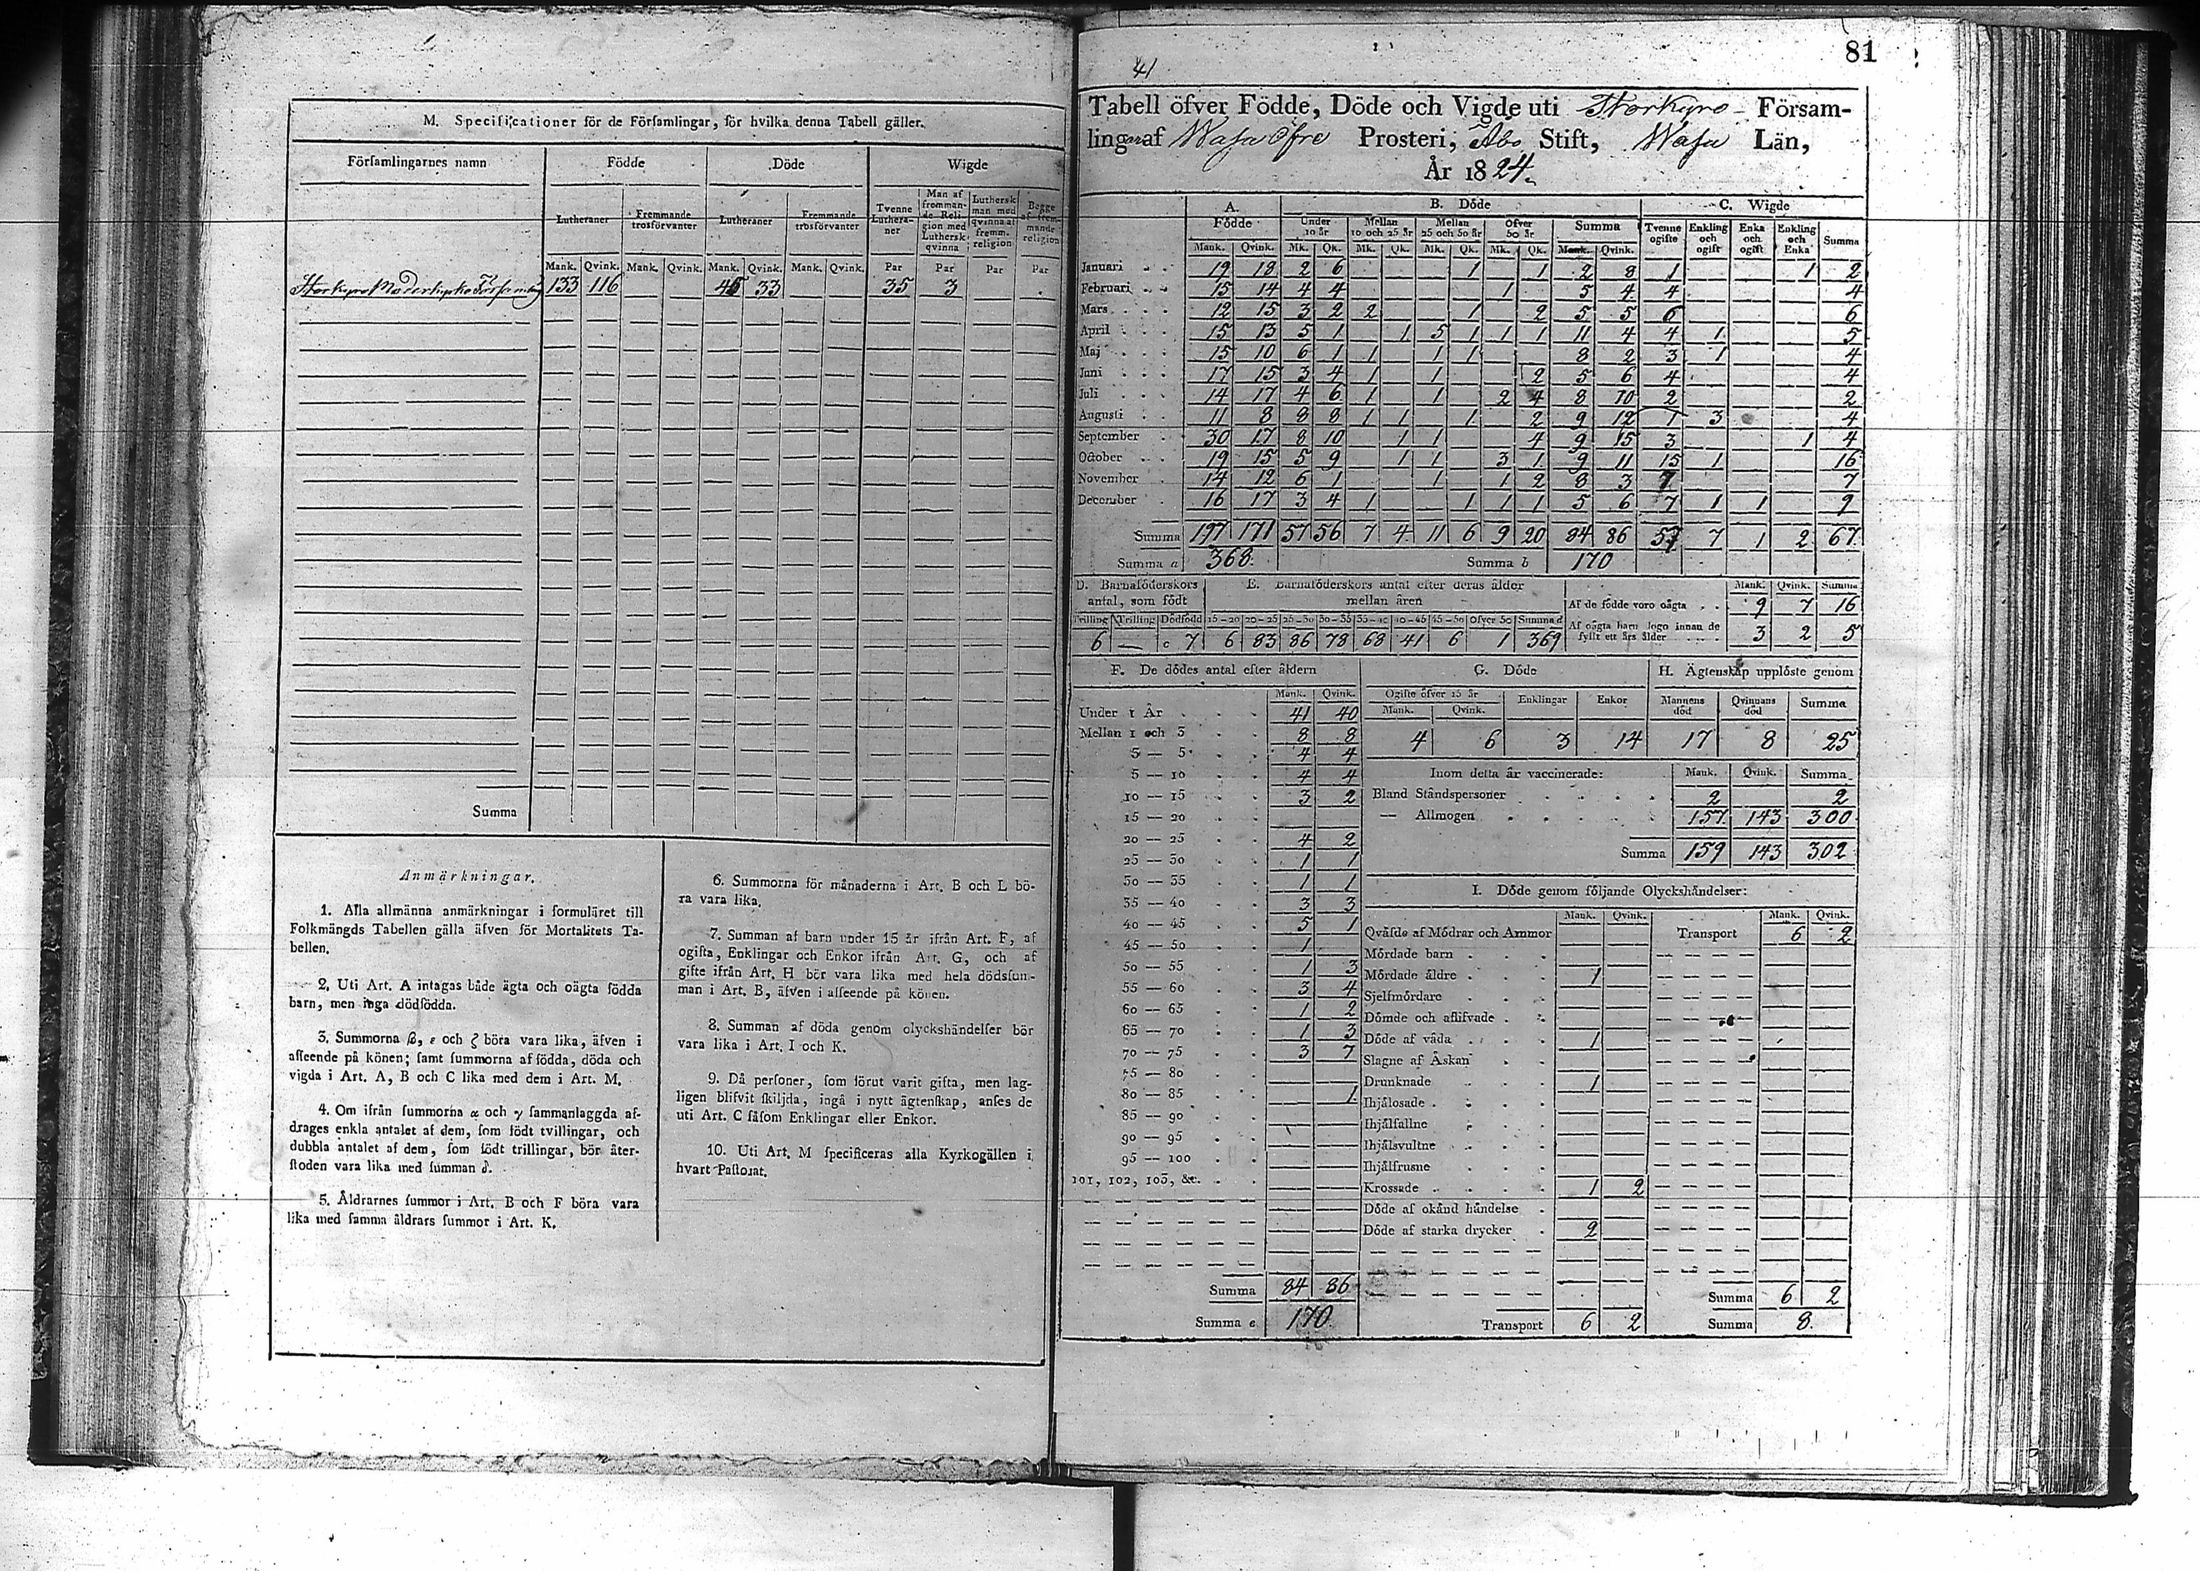 M. Specificationer för de Församlingar, för hvilka denna Tabell gäller.
Församlingarnes namn | Födde | Döde | Wigde
Lutheraner | Fremmande trosförvanter | Lutheraner | Fremmande trosförvanter | Tvenne Lutheraner | Man af fremmande Religion med Luthersk qvinna | Luthersk man med qvinna af fremm. religion | Begge af fremmande religion
Mank. | Qvink. | Mank. | Qvink. | Mank. | Qvink. | Mank. | Qvink. | Par | Par | Par | Par
Storkyro Moderkyrko Församling | 133 | 116 | 45 | 33 | 35 | 3
Summa
Anmärkningar.
1. Alla allmänna anmärkningar i formuläret till
Folkmängds Tabellen gälla äfven för Mortalitets Ta-
bellen.
2. Uti Art. A intagas både ägta och oägta födda
barn, men inga dödfödda.
3. Summorna β, ε och ζ böra vara lika, äfven i
afseende på könen; samt summorna af födda, döda och
vigda i Art. A, B och C lika med dem i Art. M.
4. Om ifrån summorna α och γ sammanlaggda af-
drages enkla antalet af dem, som födt tvillingar, och
dubbla antalet af dem, som födt trillingar, bör åter-
stoden vara lika med summan δ.
5. Åldrarnes summor i Art. B och F böra vara
lika med samma åldrars summor i Art. K.
6. Summorna för månaderna i Art. B och L bö-
ra vara lika.
7. Summan af barn under 15 år ifrån Art. F, af
ogifta, Enklingar och Enkor ifrån Art. G, och af
gifte ifrån Art. H bör vara lika med hela dödssum-
man i Art. B, äfven i afseende på könen.
8. Summan af döda genom olyckshändelser bör
vara lika i Art. I och K.
9. Då personer, som förut varit gifta, men lag-
ligen blifvit skiljda, ingå i nytt ägtenskap, anses de
uti Art. C såsom Enklingar eller Enkor.
10. Uti Art. M specificeras alla Kyrkogällen i
hvart Pastorat.
81
41
Tabell öfver Födde, Döde och Vigde uti Storkyro Försam-
lingen af Wasa Öfre Prosteri, Åbo Stift, Wasa Län,
År 1824.
A. Födde | B. Döde | C. Wigde
Under 10 år | Mellan 10 och 25 år | Mellan 25 och 50 år | Öfver 50 år | Summa | Tvenne ogifte | Enkling och ogift | Enka och ogift | Enkling och Enka | Summa
Mank. | Qvink. | Mk. | Qk. | Mk. | Qk. | Mk. | Qk. | Mk. | Qk. | Mank. | Qvink.
Januari | 19 | 18 | 2 | 6 | | | | 1 | | 1 | 2 | 8 | 1 | | | 1 | 2
Februari | 15 | 14 | 4 | 4 | | | | | 1 | | 5 | 4 | 4 | | | | 4
Mars | 12 | 15 | 3 | 2 | 2 | | | 1 | | 2 | 5 | 5 | 6 | | | | 6
April | 15 | 13 | 5 | 1 | | 1 | 5 | 1 | 1 | 1 | 11 | 4 | 4 | 1 | | | 5
Maj | 15 | 10 | 6 | 1 | 1 | | 1 | 1 | | | 8 | 2 | 3 | 1 | | | 4
Juni | 17 | 15 | 3 | 4 | 1 | | 1 | | | 2 | 5 | 6 | 4 | | | | 4
Juli | 14 | 17 | 4 | 6 | 1 | | 1 | | 2 | 4 | 8 | 10 | 2 | | | | 2
Augusti | 11 | 8 | 8 | 8 | 1 | 1 | | 1 | | 2 | 9 | 12 | 1 | 3 | | | 4
September | 30 | 17 | 8 | 10 | | 1 | 1 | | | 4 | 9 | 15 | 3 | | | 1 | 4
October | 19 | 15 | 5 | 9 | | 1 | 1 | | 3 | 1 | 9 | 11 | 15 | 1 | | | 16
November | 14 | 12 | 6 | 1 | | | 1 | | 1 | 2 | 8 | 3 | 7 | | | | 7
December | 16 | 17 | 3 | 4 | 1 | | | 1 | 1 | 1 | 5 | 6 | 7 | 1 | 1 | | 9
Summa | 197 | 171 | 57 | 56 | 7 | 4 | 11 | 6 | 9 | 20 | 84 | 86 | 57 | 7 | 1 | 2 | 67
Summa a | 368 | Summa b | 170
D. Barnaföderskors antal, som födt | E. Barnaföderskors antal efter deras ålder mellan åren | Mank. | Qvink. | Summa
Tvilling | Trilling | Dödfödd | 15-20 | 20-25 | 25-30 | 30-35 | 35-40 | 40-45 | 45-50 | Öfver 50 | Summa d
6 | — | c 7 | 6 | 83 | 86 | 78 | 68 | 41 | 6 | 1 | 369
Af de födde voro oägta | 9 | 7 | 16
Af oägta barn dogo innan de fyllt ett års ålder | 3 | 2 | 5
F. De dödes antal efter åldern
Mank. | Qvink.
Under 1 År | 41 | 40
Mellan 1 och 3 | 8 | 8
3 — 5 | 4 | 4
5 — 10 | 4 | 4
10 — 15 | 3 | 2
15 — 20
20 — 25 | 4 | 2
25 — 30 | 1 | 1
30 — 35 | 1 | 1
35 — 40 | 3 | 3
40 — 45 | 5 | 1
45 — 50 | 1
50 — 55 | 1 | 3
55 — 60 | 3 | 4
60 — 65 | 1 | 2
65 — 70 | 1 | 3
70 — 75 | 3 | 7
75 — 80
80 — 85 | | 1
85 — 90
90 — 95
95 — 100
101, 102, 103, &c.
Summa | 84 | 86
Summa e | 170
G. Döde | H. Ägtenskap upplöste genom
Ogifte öfver 15 år | Enklingar | Enkor | Mannens död | Qvinnans död | Summa
Mank. | Qvink.
4 | 6 | 3 | 14 | 17 | 8 | 25
Inom detta år vaccinerade: | Mank. | Qvink. | Summa
Bland Ståndspersoner | 2 | | 2
— Allmogen | 157 | 143 | 300
Summa | 159 | 143 | 302
I. Döde genom följande Olyckshändelser:
Mank. | Qvink. | Mank. | Qvink.
Qväfde af Mödrar och Ammor | Transport | 6 | 2
Mördade barn
Mördade äldre | 1
Sjelfmördare
Dömde och aflifvade
Döde af våda | 1
Slagne af Åskan
Drunknade | 1
Ihjälosade
Ihjälfallne
Ihjälsvultne
Ihjälfrusne
Krossade | 1 | 2
Döde af okänd händelse
Döde af starka drycker | 2
Summa | 6 | 2
Transport | 6 | 2 | Summa | 8